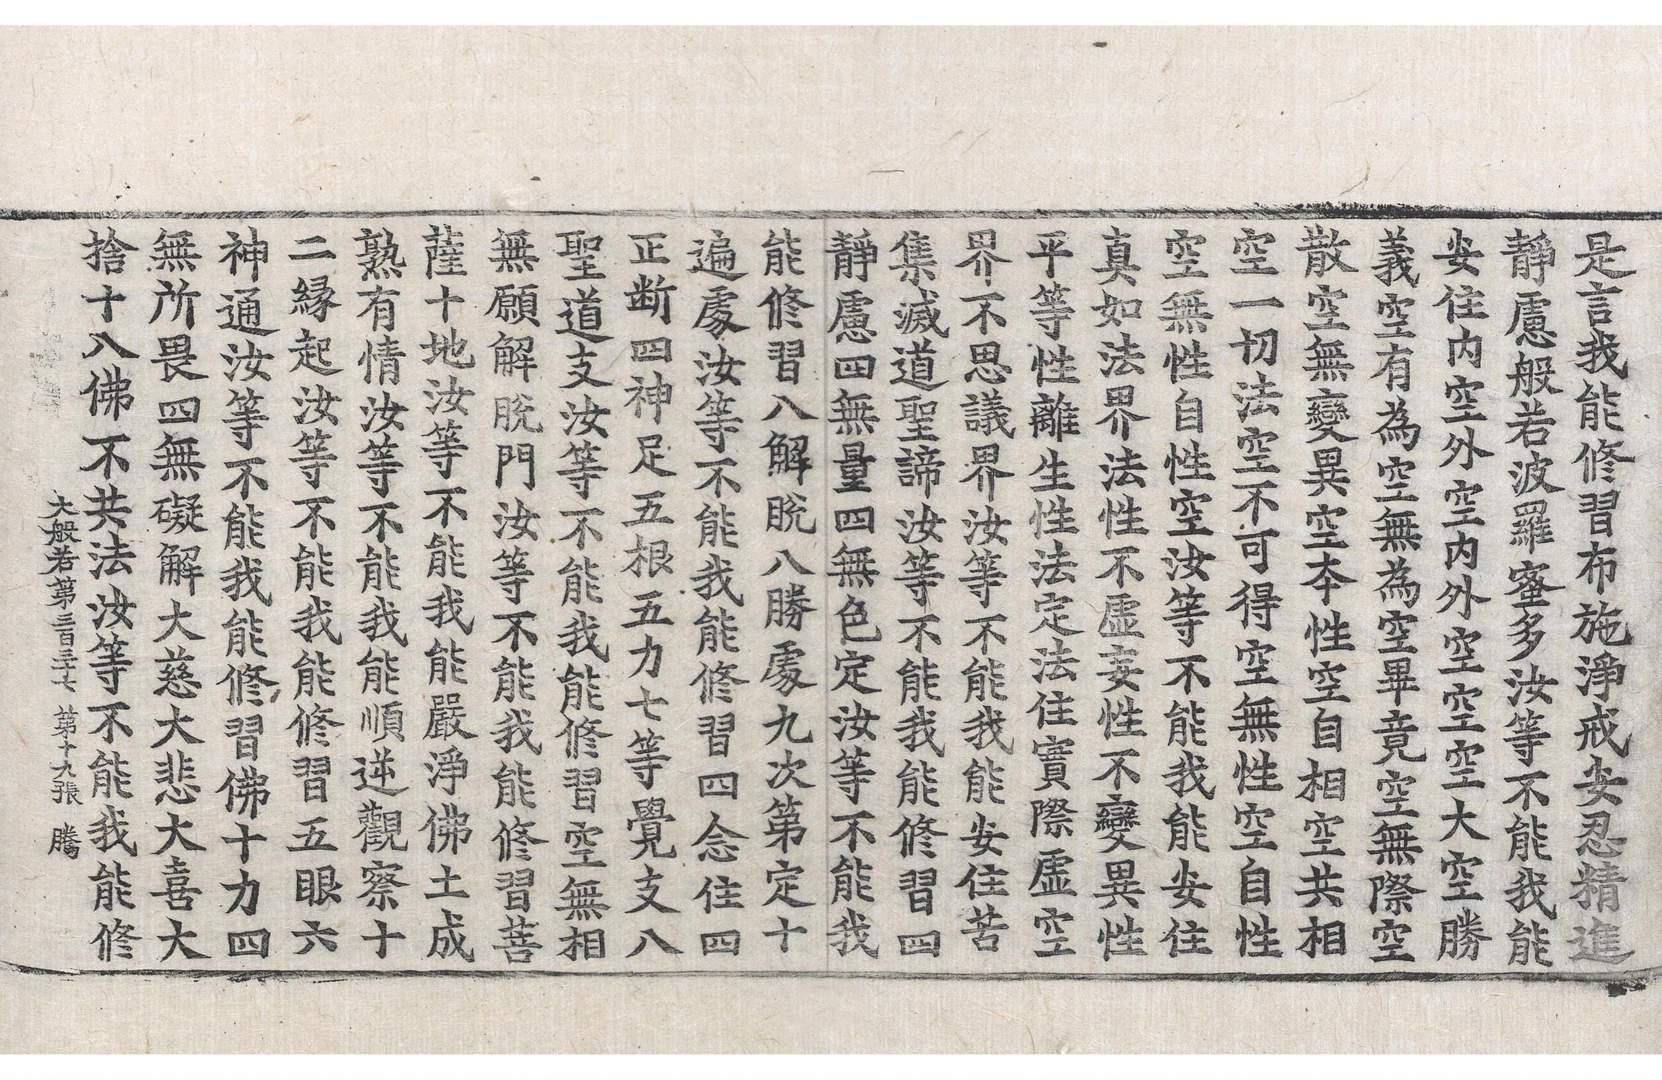 是言我能修習布施淨戒安忍精進
靜慮般若波羅蜜多汝等不能我能
安住内空外空内外空空空大空勝
義空有為空無為空畢竟空無際空
散空無變異空本性空自相空共相
空一切法空不可得空無性空自性
空無性自性空汝等不能我能安住
真如法界法性不虛妄性不變異性
平等性離生性法定法住實際虛空
界不思議界汝等不能我能安住苦
集滅道聖諦汝等不能我能修習四
靜慮四無量四無色定汝等不能我
能修習八解脫八勝處九次第定十
遍處汝等不能我能修習四念住四
正断四神足五根五力七等覺支八
聖道支汝等不能我能修習空無相
無願解脫門汝等不能我能修習菩
薩十地汝等不能我能嚴淨佛土成
熟有情汝等不能我能順逆觀察十
二縁起汝等不能我能修習五眼六
神通汝等不能我能修習佛十力四
無所畏四無礙解大慈大悲大喜大
捨十八佛不共法汝等不能我能修
大般若第三百三十七 第十九張 騰